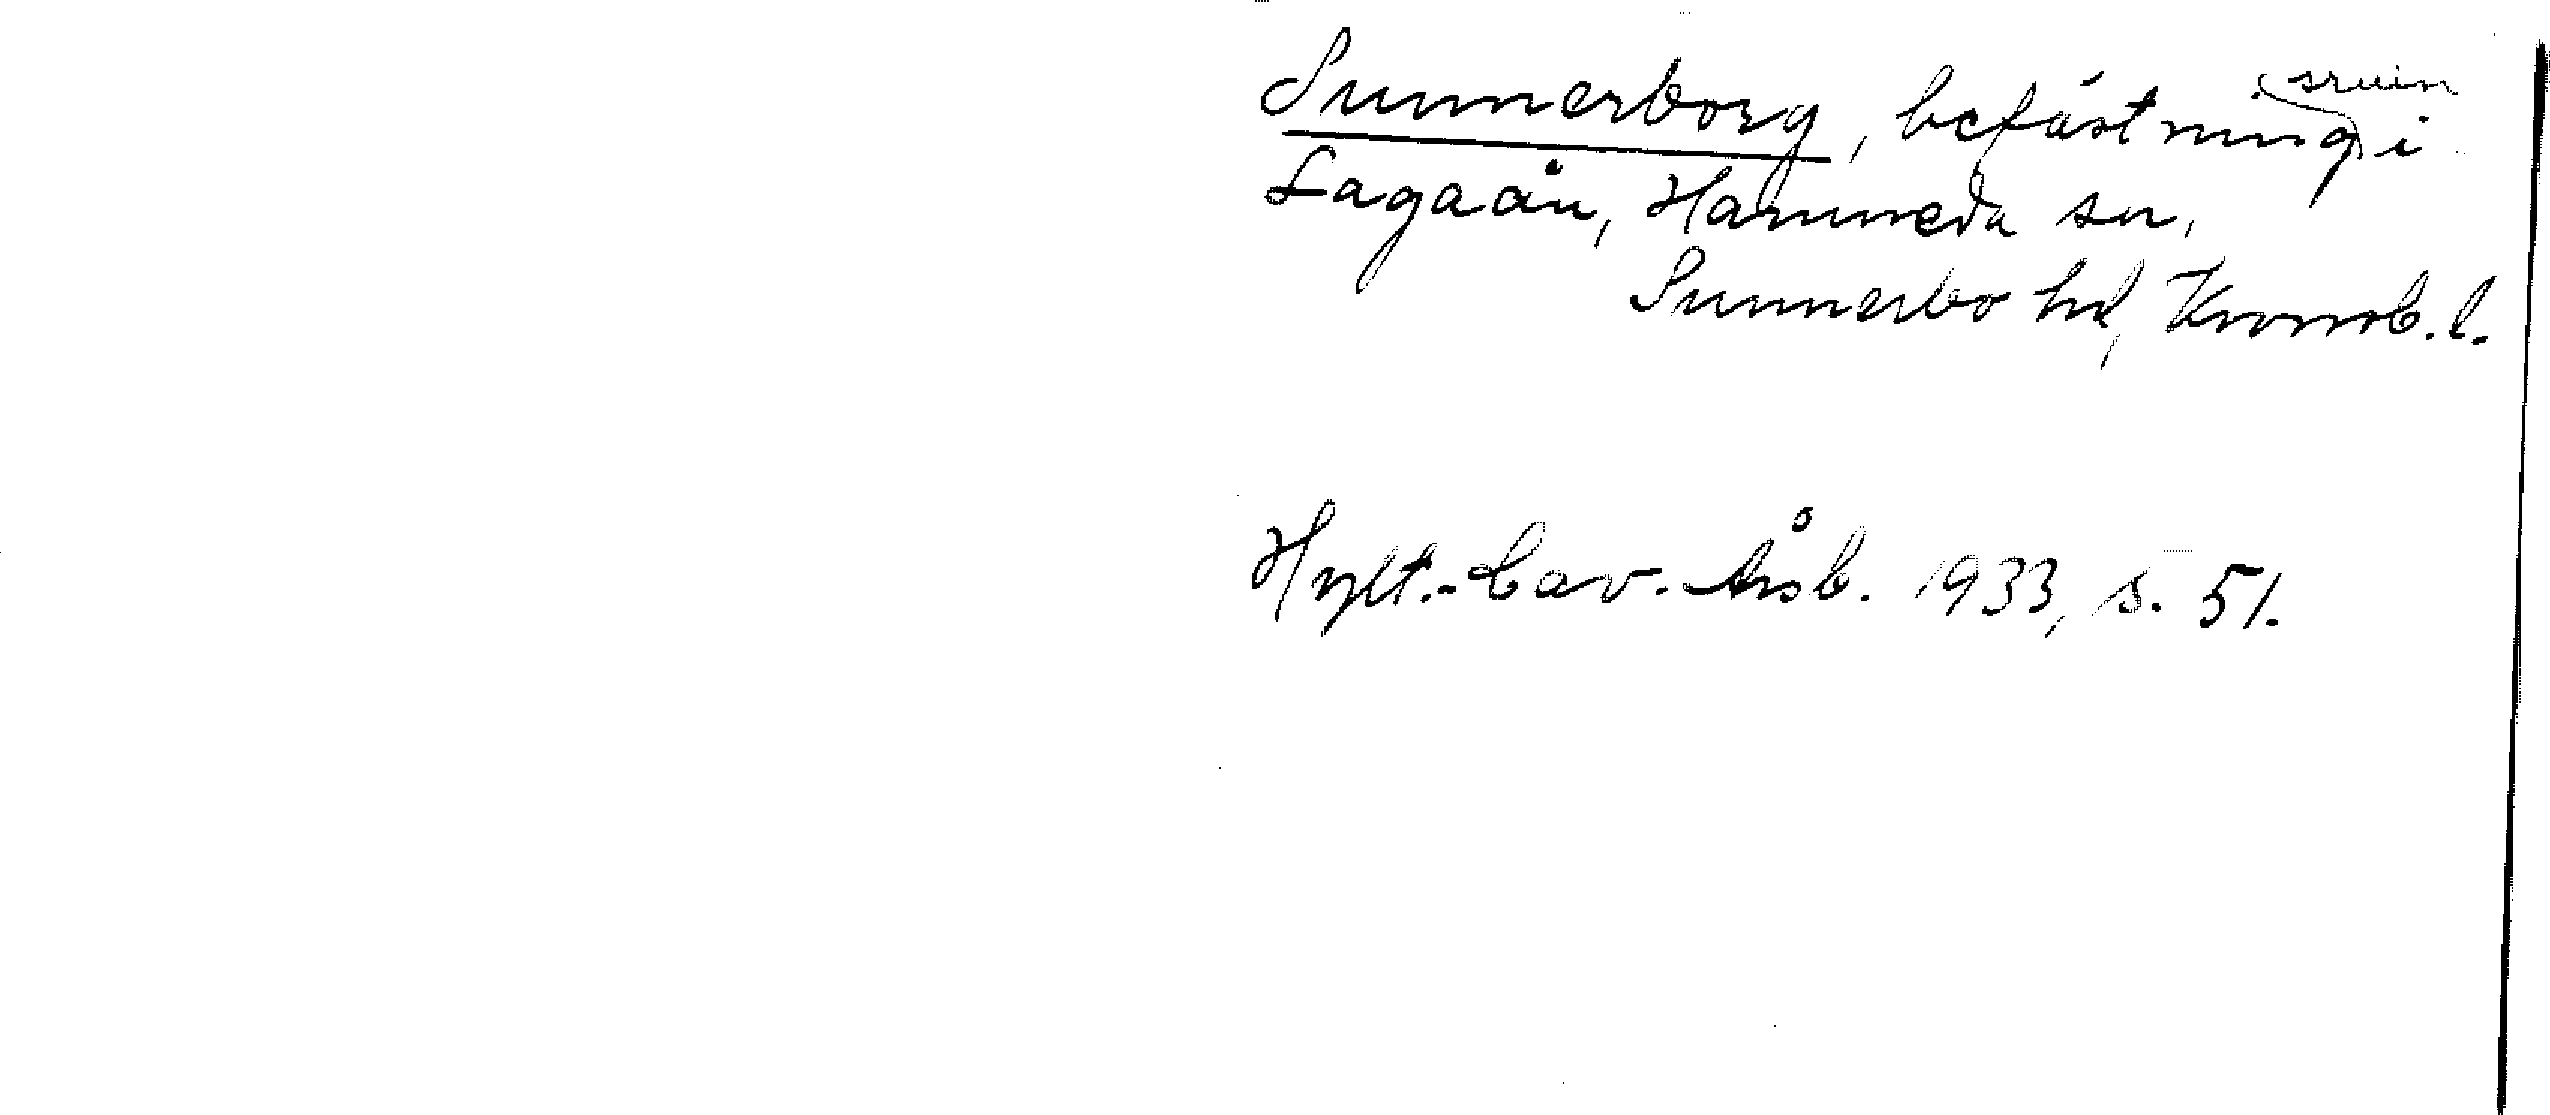 Sunnerborg, befästningsruin i
Lagaån, Hamneda sn,
Sunnerbo hd, Kronob. l.
Hylt.-Cav. Årsb. 1933, s. 51.